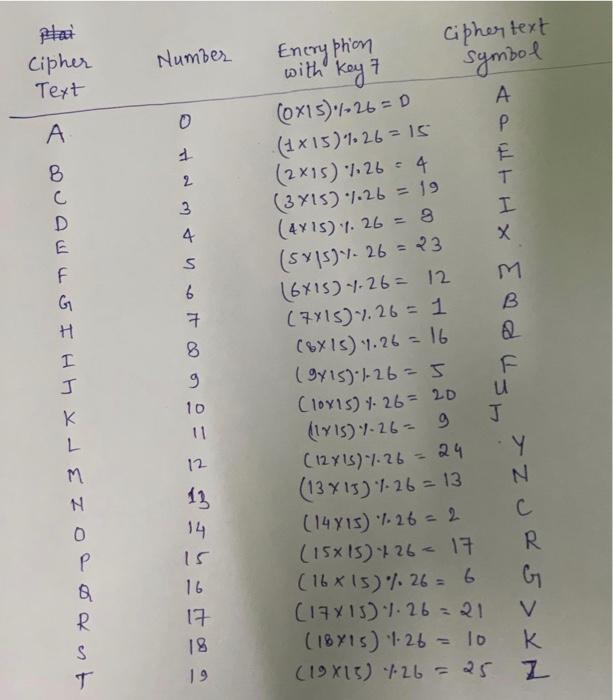 Cipher Text Number Encryphion with key 7 Ciphertext symbol
A 0 (0x15)%26 = 0 A
B 1 (1x15)%26 = 15 P
C 2 (2x15)%26 = 4 E
D 3 (3x15)%26 = 19 T
E 4 (4x15)%26 = 8 I
F 5 (5x15)%26 = 23 X
G 6 (6x15)%26 = 12 M
H 7 (7x15)%26 = 1 B
I 8 (8x15)%26 = 16 Q
J 9 (9x15)%26 = 5 F
K 10 (10x15)%26 = 20 U
L 11 (11x15)%26 = 9 J
M 12 (12x15)%26 = 24 Y
N 13 (13x15)%26 = 13 N
O 14 (14x15)%26 = 2 C
P 15 (15x15)%26 = 17 R
Q 16 (16x15)%26 = 6 G
R 17 (17x15)%26 = 21 V
S 18 (18x15)%26 = 10 K
T 19 (19x15)%26 = 25 Z